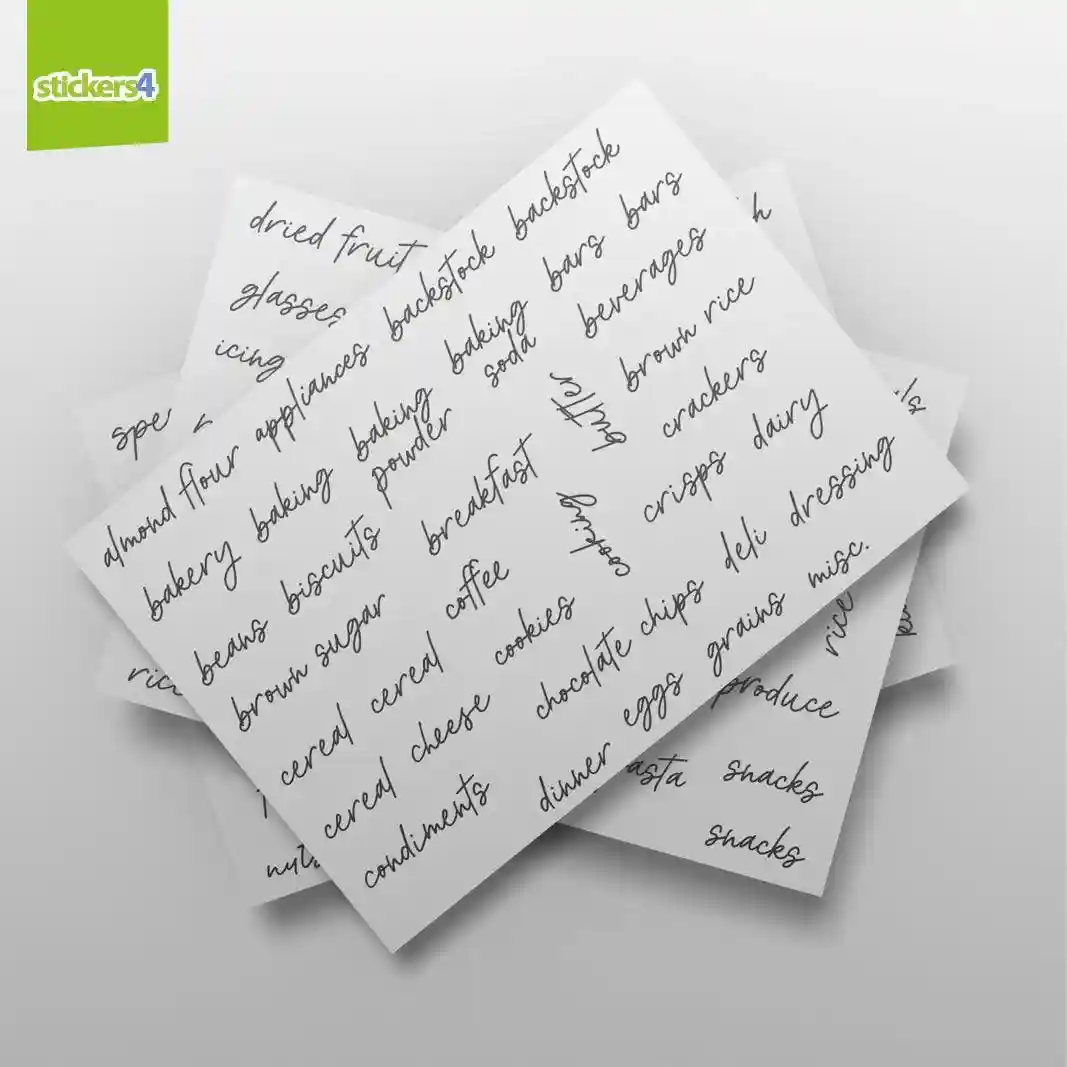 stickers4
almond flour appliances backstock backstock
bakery baking baking powder baking soda bars bars
beans biscuits breakfast butter beverages
brown sugar coffee cooking brown rice
cereal cereal cookies crisps crackers
cereal cheese chocolate chips deli dairy
condiments dinner eggs grains misc. dressing
dried fruit
glasses
icing
rice
produce
snacks
snacks